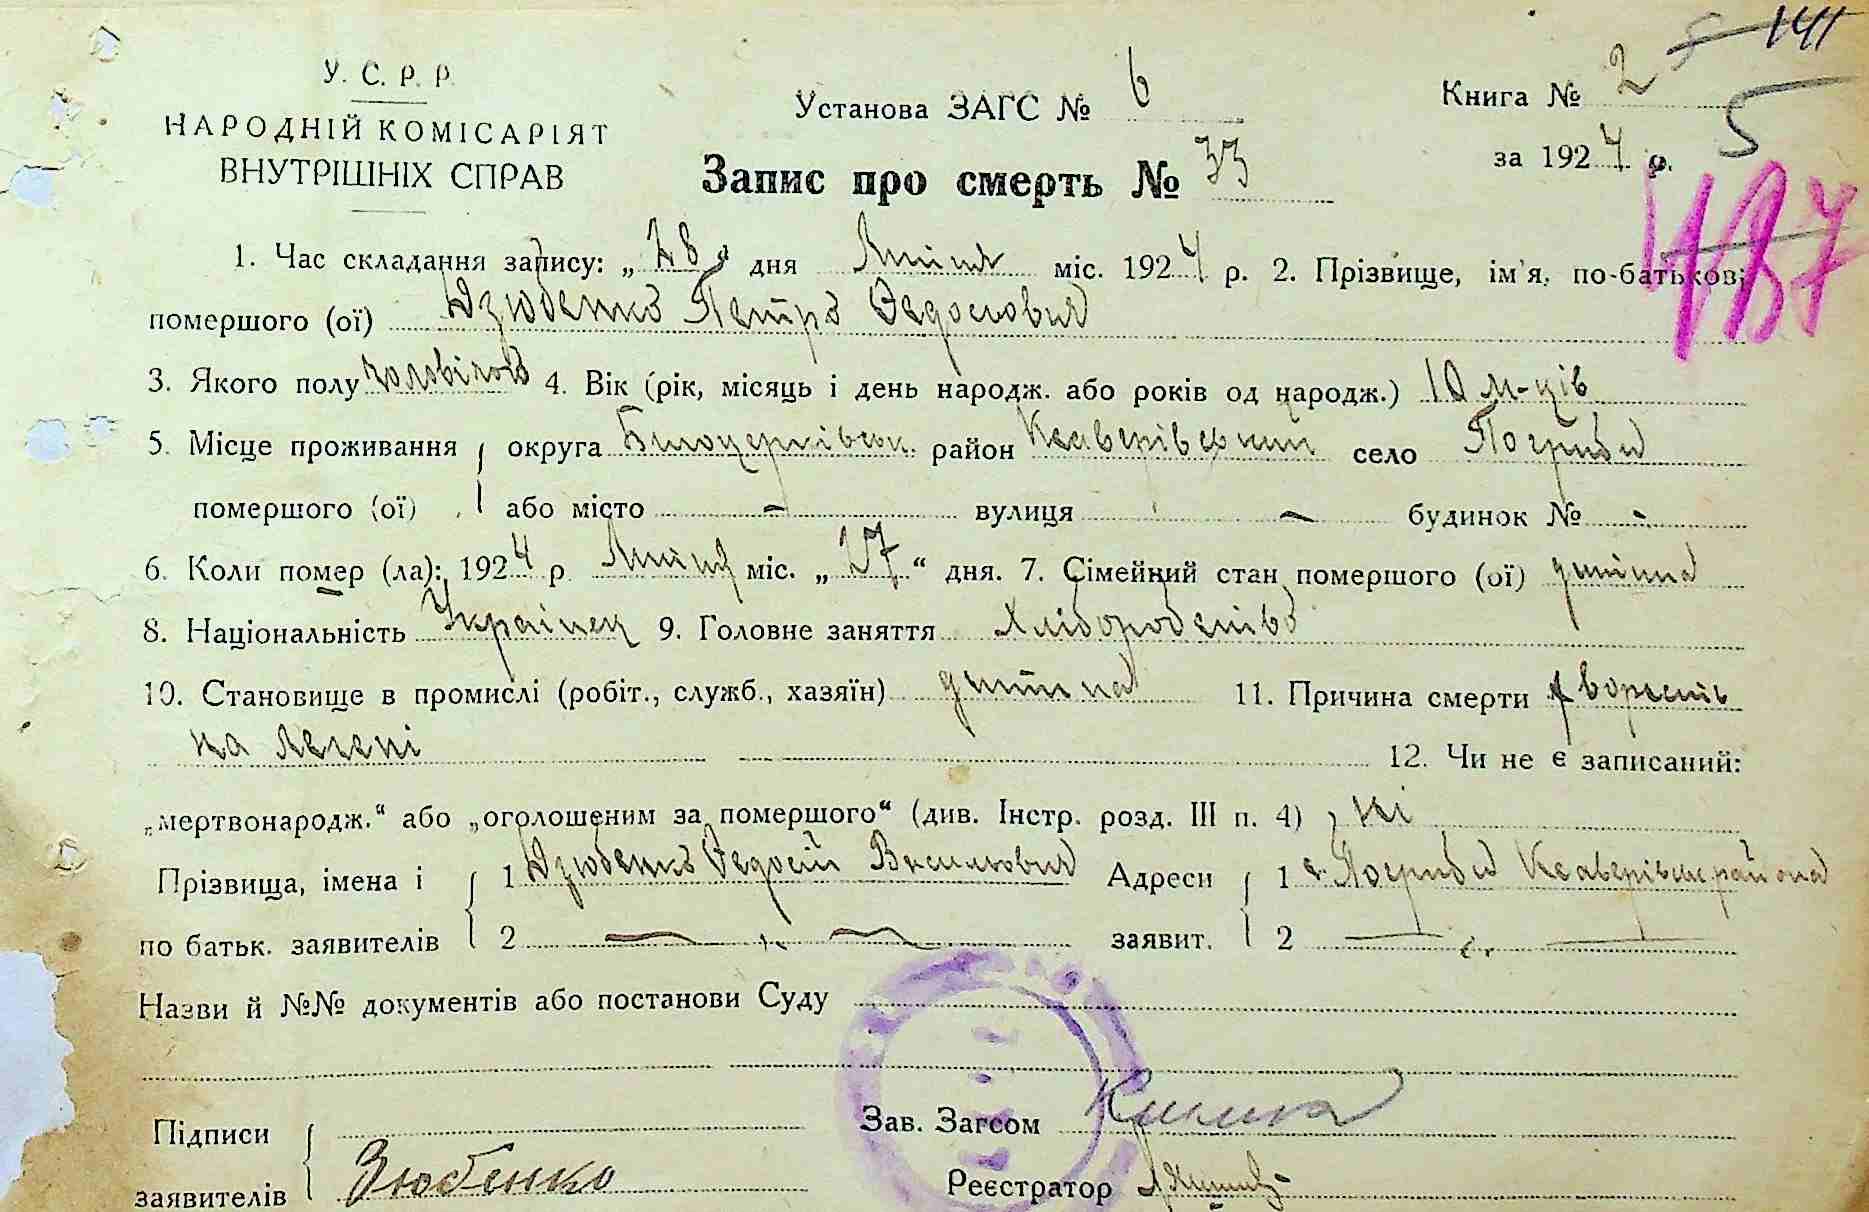 У. С. Р. Р.
НАРОДНІЙ КОМІСАРІЯТ
ВНУТРІШНІХ СПРАВ
Установа ЗАГС № 6
Книга № 2
141
5
за 1924 р.
Запис про смерть № 33
187
1. Час складання запису: „28“ дня Липця міс. 1924 р. 2. Прізвище, ім'я, по-батькові
помершого (ої) Дзюбенко Петро Федосьович
3. Якого полу чоловічого 4. Вік (рік, місяць і день народж. або років од народж.) 10 м-ців
5. Місце проживання округа Білоцерківськ. район Ксаверівський село Погриби
помершого (ої) або місто - вулиця - будинок № -
6. Коли помер (ла): 1924 р. Липця міс. „27“ дня. 7. Сімейний стан помершого (ої) дитина
8. Національність Українец 9. Головне заняття Хліборобство
10. Становище в промислі (робіт., служб., хазяїн) дитина 11. Причина смерти хворость
на легені 12. Чи не є записаний:
„мертвонародж.“ або „оголошеним за помершого“ (див. Інстр. розд. III п. 4) ні
Прізвища, імена і 1 Дзюбенко Федосій Васильович Адреси 1 с. Погриби Ксаверівськ района
по батьк. заявителів 2 заявит. 2
Назви й №№ документів або постанови Суду
Підписи Зав. Загсом
заявителів Зюбенко Реєстратор